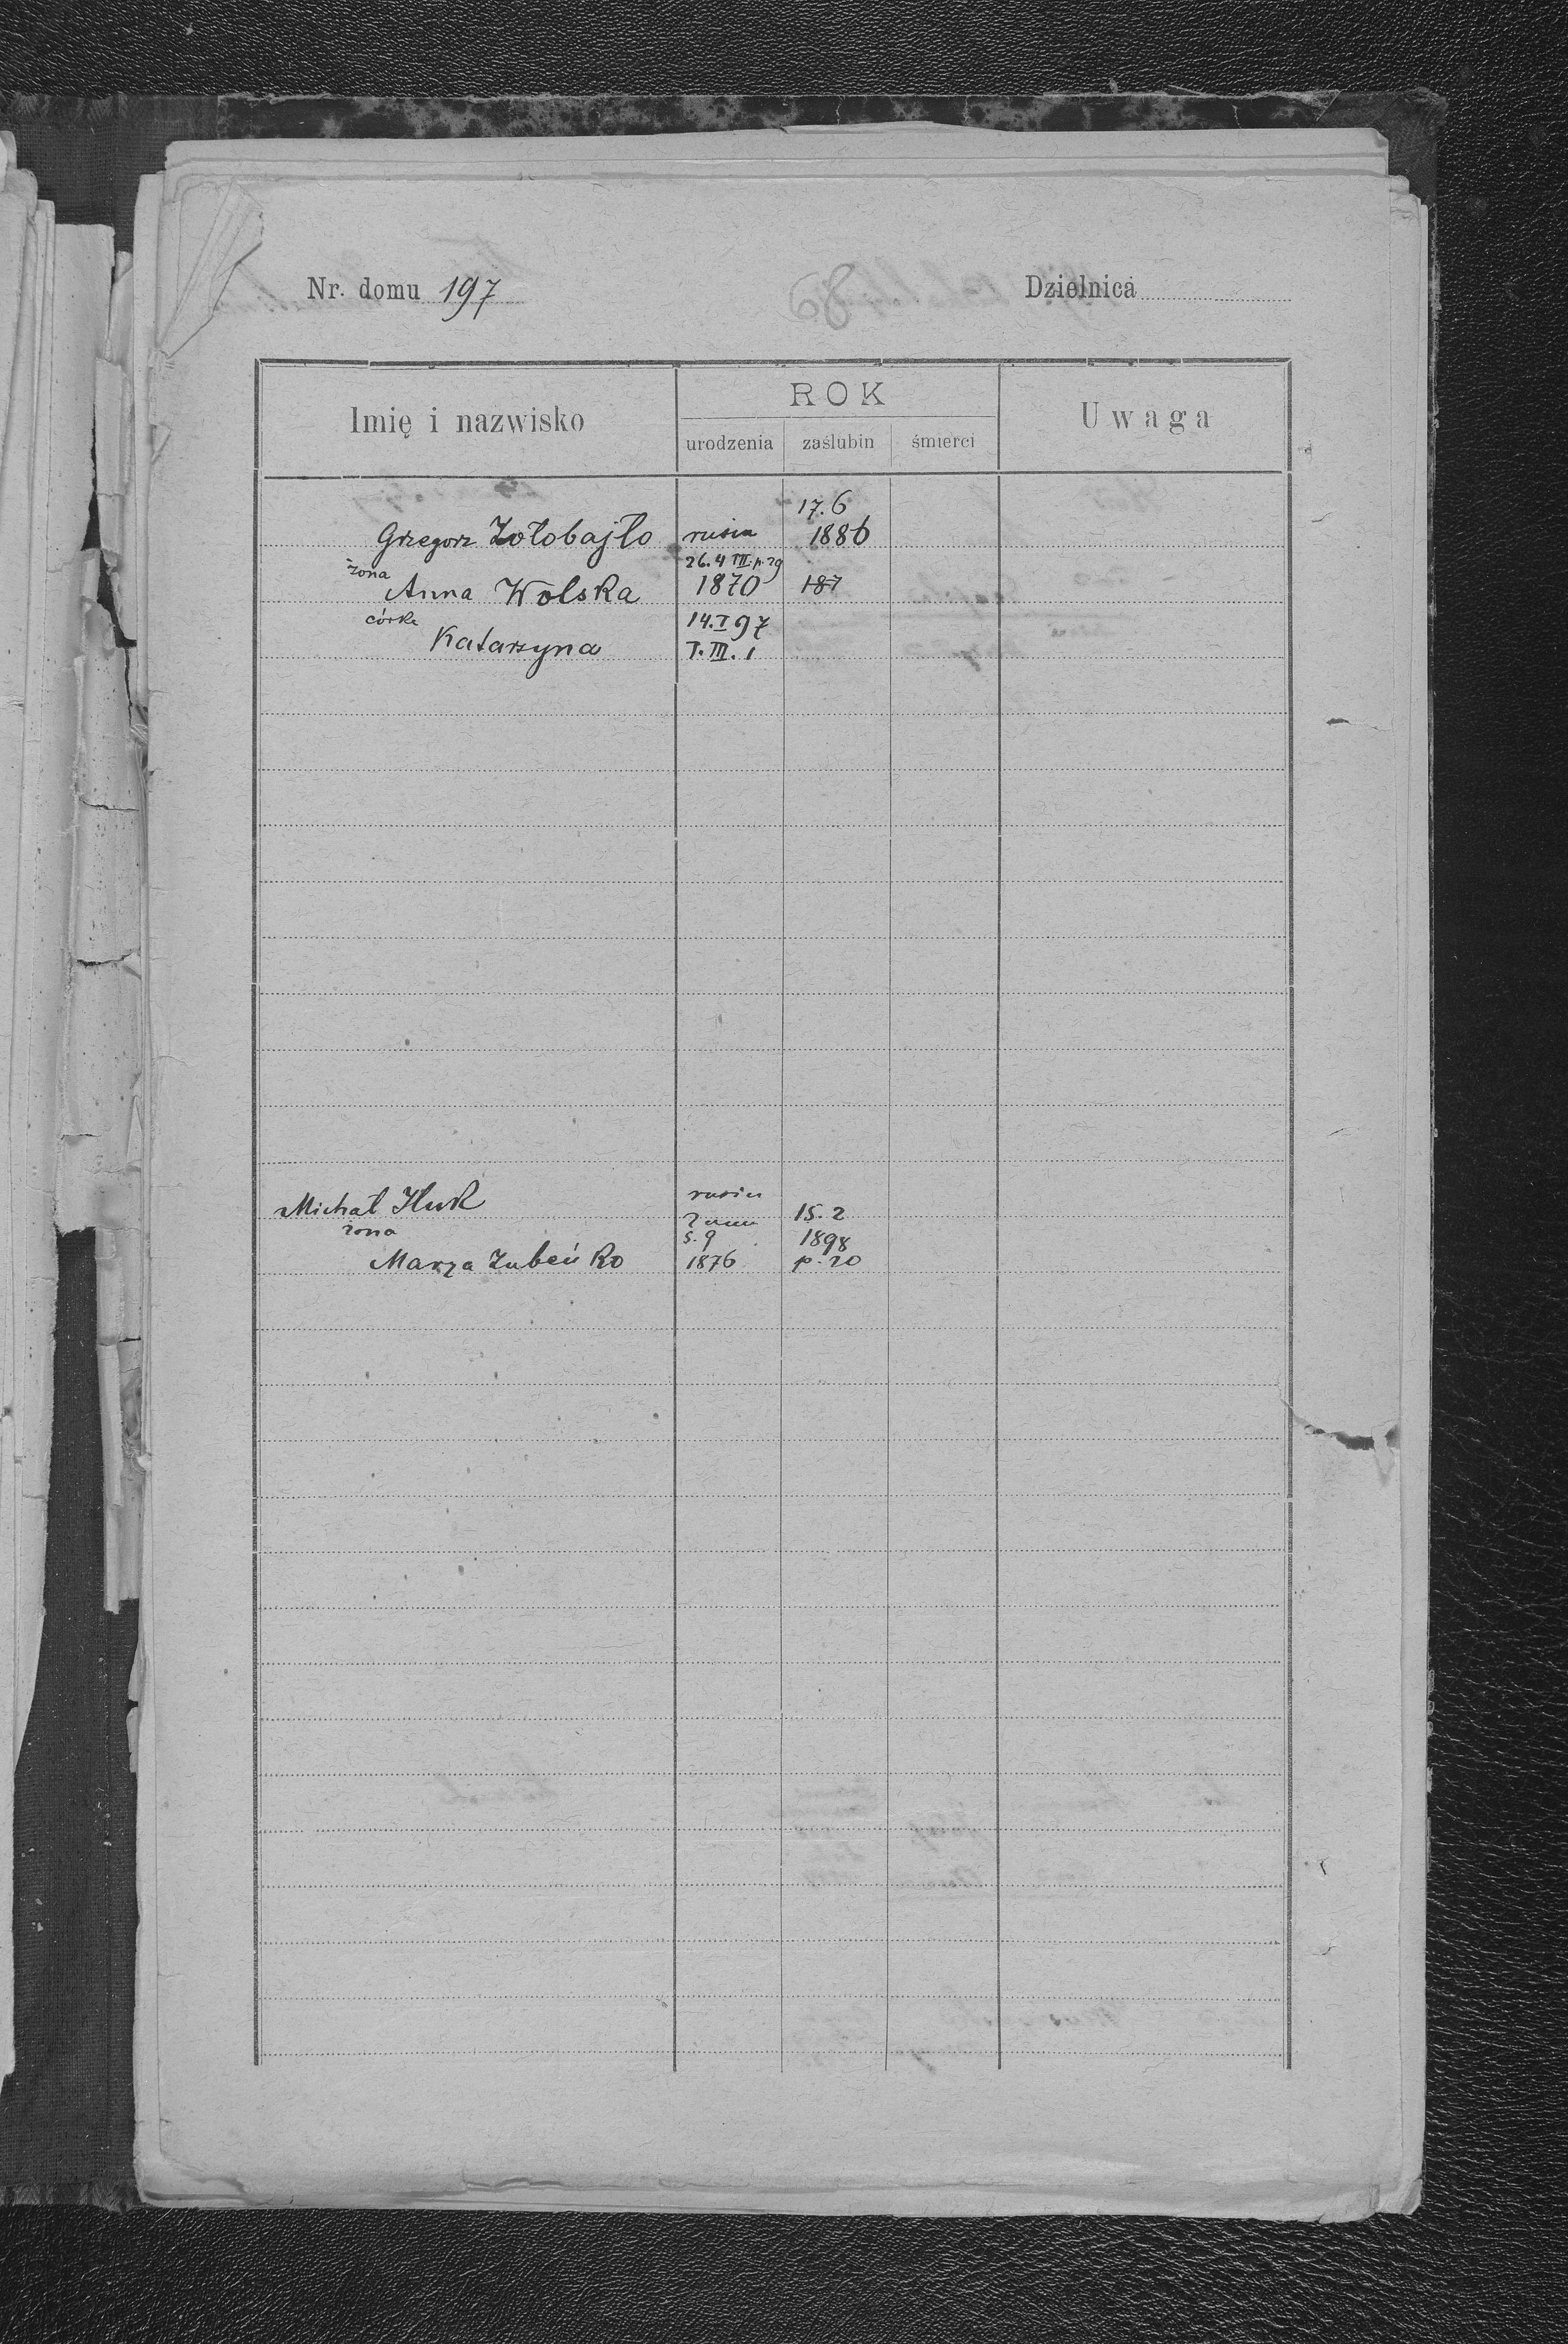 Nr. domu 197
Dzielnica
Imię i nazwisko
ROK
urodzenia zaślubin śmierci
Uwaga
17.6
Grzegorz Zołobajło rusin 1886
żona 26.4 TIII.p.29
Anna Wolska 1870 187
córka 14.I 97
Katarzyna T.III.1
Michał Huk rusin
15.2
żona 5.9 1898
Marya Zubeńko 1876 p.20